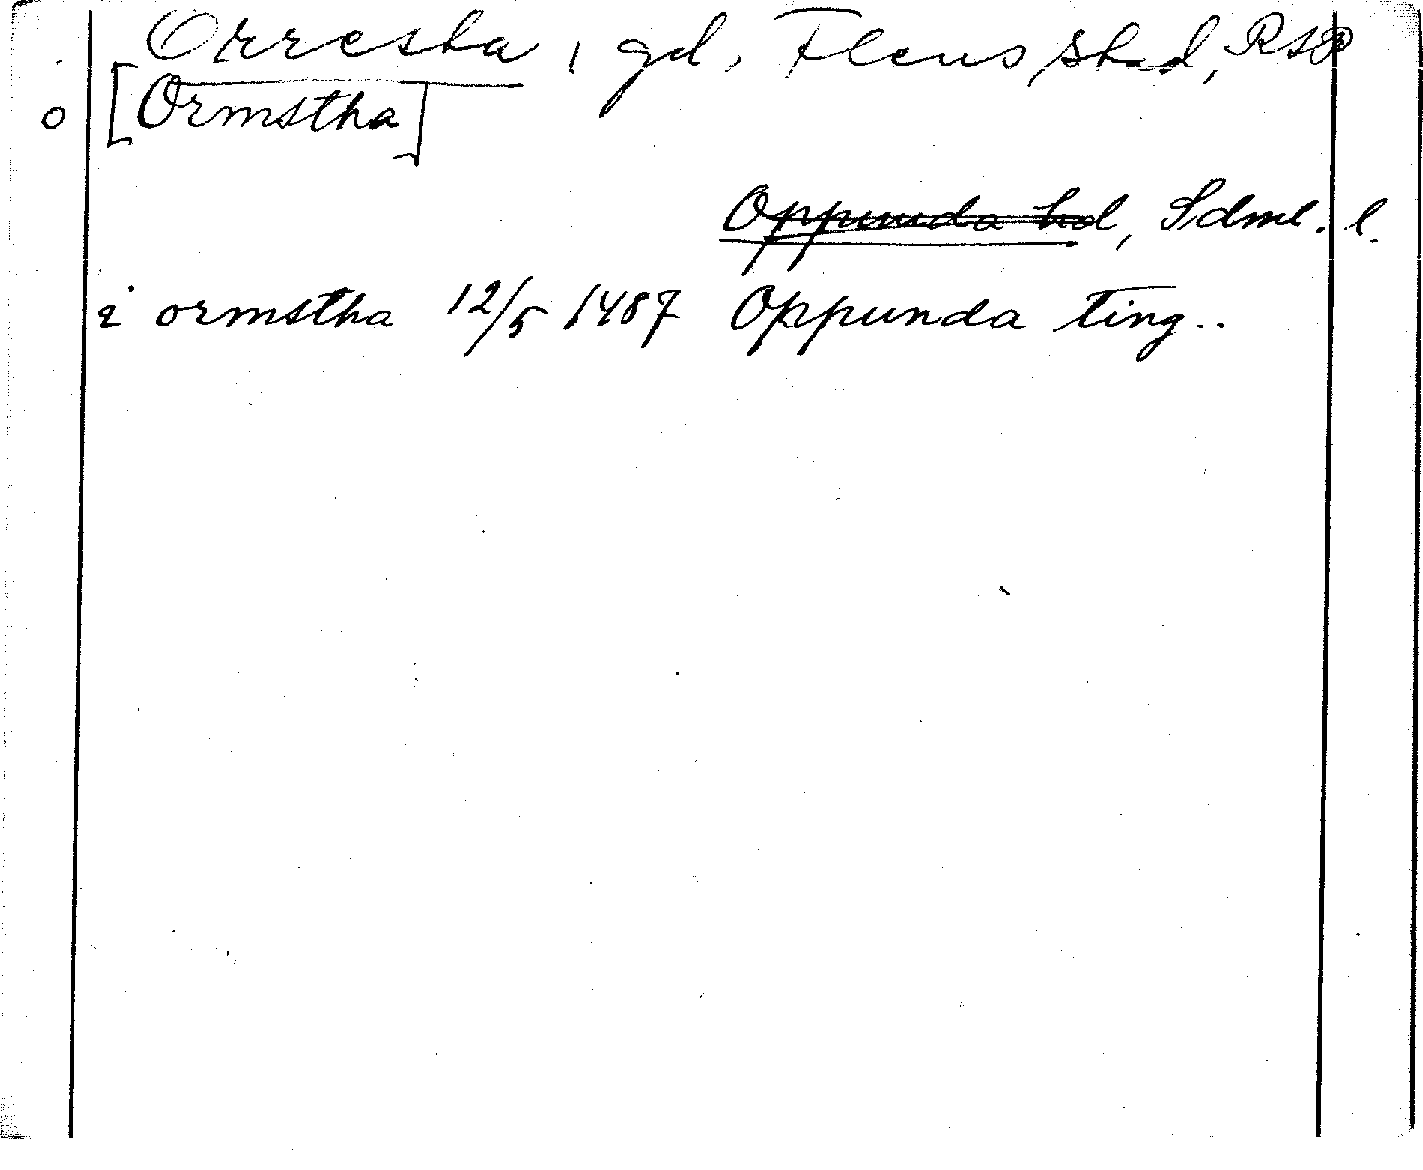 Orresta, gd, Flens stad,
o [Ormstha]
Oppunda hd, Sdml. l.
i ormstha 12/5 1487 Oppunda ting..